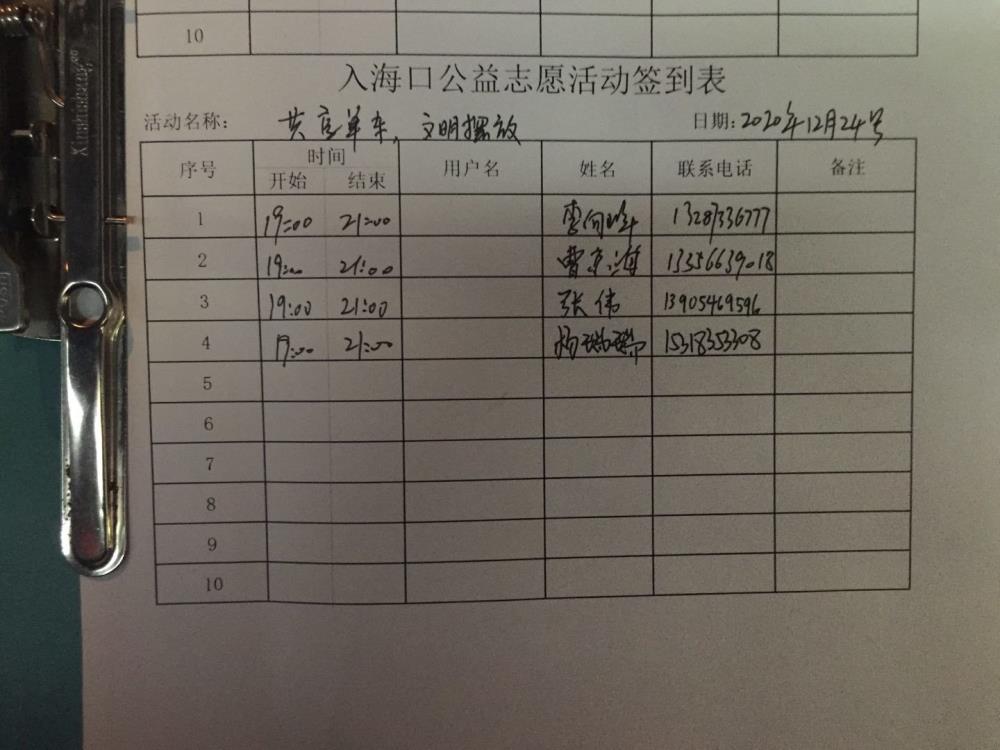 10
入海口公益志愿活动签到表
活动名称: 共享单车,文明摆放 日期:2020年12月24号
序号 时间 用户名 姓名 联系电话 备注
开始 结束
1 19:00 21:00 李向 13287336777
2 19:00 21:00 曹京海 13356639018
3 19:00 21:00 张伟 13905469596
4 19:00 21:00 杨珊珊 15318353308
5
6
7
8
9
10